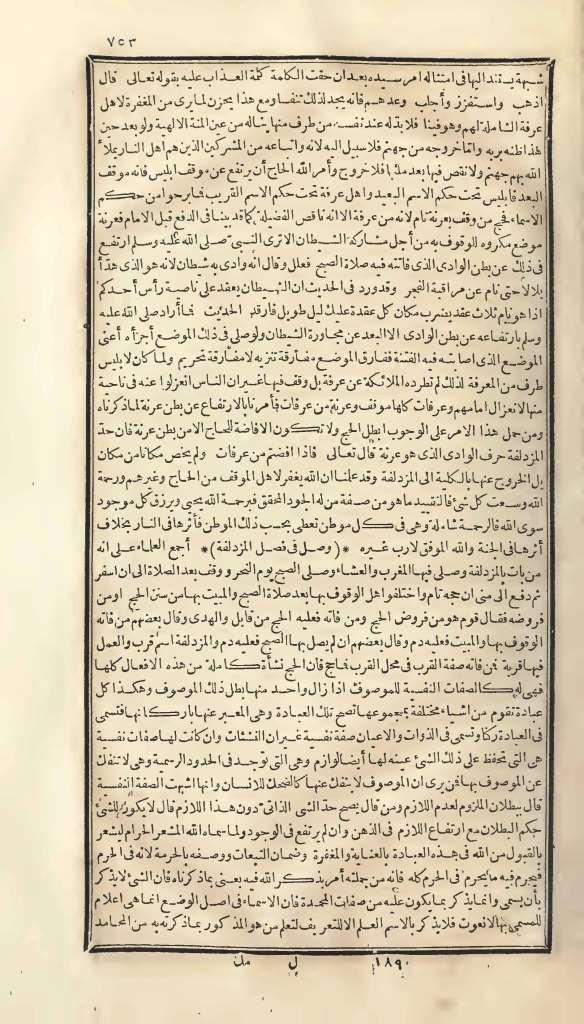 ٧٥٣
شبهة يستند اليها في امتثاله امر سيده بعد ان حقت الكلمة كلمة العذاب عليه بقوله تعالى قال
اذهب واستفزز وأجلب وعدهم فانه يجد لذلك تنفسا ومع هذا يحزن لما يرى من المغفرة لاهل
عرفة الشاملة لهم وهو فينا فلا بد له عند نفسه من طرف منها يناله من عين المنة الالهية ولو بعد حين
هذا ظنه بربه وانما خروجه من جهنم فلا سبيل اليه لانه واتباعه من المشركين الذين هم اهل النار يملأ
الله بهم جهنم ولا نقص فيها بعد ملئها فلا خروج وأمر الله الحاج أن يرتفع عن موقف ابليس فانه موقف
البعد فابليس تحت حكم الاسم البعيد واهل عرفة تحت حكم الاسم القريب فابرحوا من حكم
الاسماء فحج من وقف بعرنة تام لانه من عرفة الا انه ناقص الفضيلة كما قد بينا في الدفع قبل الامام فعرنة
موضع مكروه للوقوف به من أجل مشاركة الشيطان الا ترى النبي صلى الله عليه وسلم ارتفع
في ذلك عن بطن الوادي الذي فاتته فيه صلاة الصبح فعلل وقال انه وادي به شيطان لانه هو الذي هدأ
بلالا حتى نام عن مراقبة الفجر وقد ورد في الحديث ان الشيطان يعقد على ناصية رأس أحدكم
اذا هو نام ثلاث عقد يضرب مكان كل عقدة عليك ليل طويل فارقد الحديث فما أراد صلى الله عليه
وسلم بارتفاعه عن بطن الوادي الا البعد عن مجاورة الشيطان ولو صلى في ذلك الموضع أجزأه أعني
الموضع الذي اصابته فيه الفتنة ففارق الموضع مفارقة تنزيه لا مفارقة تحريم ولما كان لابليس
طرف من المعرفة لذلك لم تطرده الملائكة عن عرفة بل وقف فيها غير ان الناس انعزلوا عنه في ناحية
منها لانعزال امامهم وعرفات كلها موقف وعرنة من عرفات فأمرنا بالارتفاع عن بطن عرنة لما ذكرناه
ومن حمل هذا الامر على الوجوب ابطل الحج ولا تكون الافاضة للحاج الا من بطن عرنة فان حد
المزدلفة حرف الوادي الذي هو عرنة قال تعالى فاذا افضتم من عرفات ولم يخص مكانا من مكان
بل الخروج عنها بالكلية الى المزدلفة وقد علمنا ان الله يغفر لاهل الموقف من الحاج وغيرهم ورحمة
الله وسعت كل شئ فالتقييد ما هو من صفة من له الجود المحقق فبرحمة الله يحيى ويرزق كل موجود
سوى الله فالرحمة شاملة وهي في كل موطن تعطي بحسب ذلك الموطن فأثرها في النار بخلاف
أثرها في الجنة والله الموفق لا رب غيره *(وصل في فصل المزدلفة)* أجمع العلماء على انه
من بات بالمزدلفة وصلى فيها المغرب والعشاء وصلى الصبح يوم النحر ووقف بعد الصلاة الى ان اسفر
ثم دفع الى منى ان حجه تام واختلفوا هل الوقوف بها بعد صلاة الصبح والمبيت بها من سنن الحج او من
فروضه فقال قوم هو من فروض الحج ومن فاته فعليه الحج من قابل والهدى وقال بعضهم من فاته
الوقوف بها والمبيت فعليه دم وقال بعضهم ان لم يصل بها الصبح فعليه دم والمزدلفة اسم قرب والعمل
فيها قربة فمن فاته صفة القرب في محل القرب فما حج فان الحج نشأة كاملة من هذه الافعال كلها
فهي له كالصفات النفسية للموصوف اذا زال واحد منها بطل ذلك الموصوف وهكذا كل
عبادة تقوم من اشياء مختلفة بمجموعها تصح تلك العبادة وهي المعبر عنها باركانها فتسمى
في العبادة ركنا وتسمى في الذوات والاعيان صفة نفسية غير ان النشئات وان كانت لها صفات نفسية
هي التي تحفظ على ذلك الشئ عينه لها أيضا لوازم وهي التي توجد في الحدود الرسمية وهي لا تنفك
عن الموصوف بها فمن يرى ان الموصوف لا ينفك عنها كالضحك للانسان وانها اشبهت الصفة النفسية
قال ببطلان الملزوم لعدم اللازم ومن قال يصح حد الشئ الذاتي دون هذا اللازم قال لا يكون للشئ
حكم البطلان مع ارتفاع اللازم في الذهن وان لم يرتفع في الوجود ولما سماه الله المشعر الحرام ليشعر
بالقبول من الله في هذه العبادة بالعناية والمغفرة وضمان التبعات ووصفه بالحرمة لانه في الحرم
فيحرم فيه ما يحرم في الحرم كله فانه من جملته أمر بذكر الله فيه يعني بما ذكرناه فان الشئ لا يذكر
بأن يسمى وانما يذكر بما يكون عليه من صفات المحمدة فان الاسماء في اصل الوضع انما هي اعلام
للمسمى بها لا نعوت فلا يذكر بالاسم العلم الا للتعريف لتعلم من هو المذكور بما ذكرته به من المحامد
١٨٩ ل مك